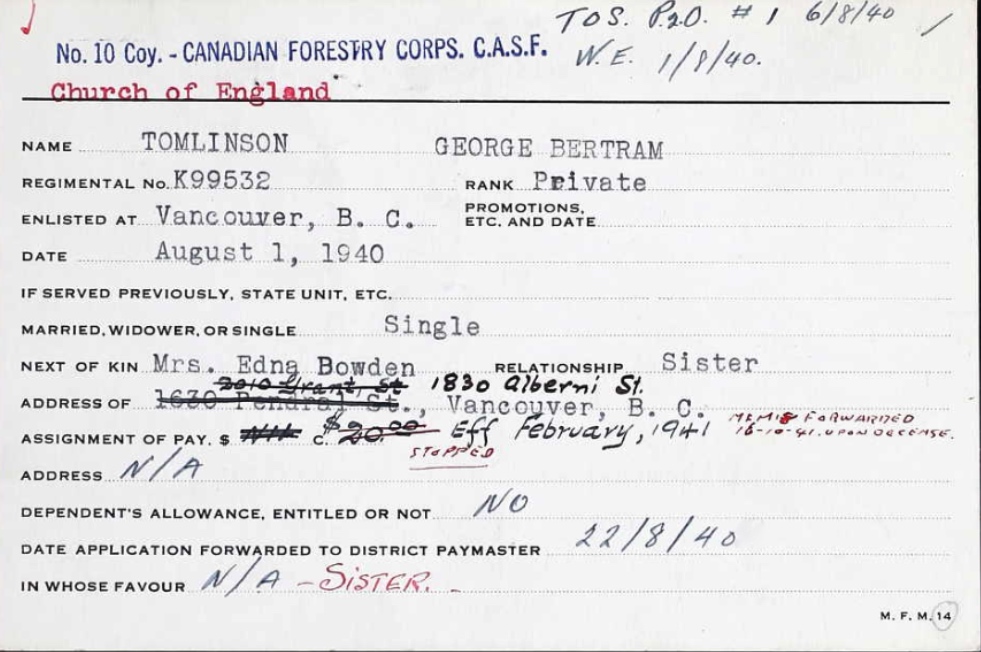 TOS. P.2.O. # 1 6/8/40
No. 10 Coy. - CANADIAN FORESTRY CORPS. C.A.S.F. W.E. 1/8/40.
Church of England
NAME TOMLINSON GEORGE BERTRAM
REGIMENTAL No. K99532 RANK Private
ENLISTED AT Vancouver, B. C. PROMOTIONS, ETC. AND DATE
DATE August 1, 1940
IF SERVED PREVIOUSLY, STATE UNIT, ETC.
MARRIED, WIDOWER, OR SINGLE Single
NEXT OF KIN Mrs. Edna Bowden RELATIONSHIP Sister
2010 Grant, St 1830 Alberni St.
ADDRESS OF 1630 Pendral St., Vancouver, B. C.
ASSIGNMENT OF PAY. $ Nil C. $20.00 Eff February, 1941 FORWARDED
STOPPED 16-10-41. UPON DECEASE.
ADDRESS N/A
DEPENDENT'S ALLOWANCE, ENTITLED OR NOT NO
DATE APPLICATION FORWARDED TO DISTRICT PAYMASTER 22/8/40
IN WHOSE FAVOUR N/A - SISTER. -
M. F. M. 14